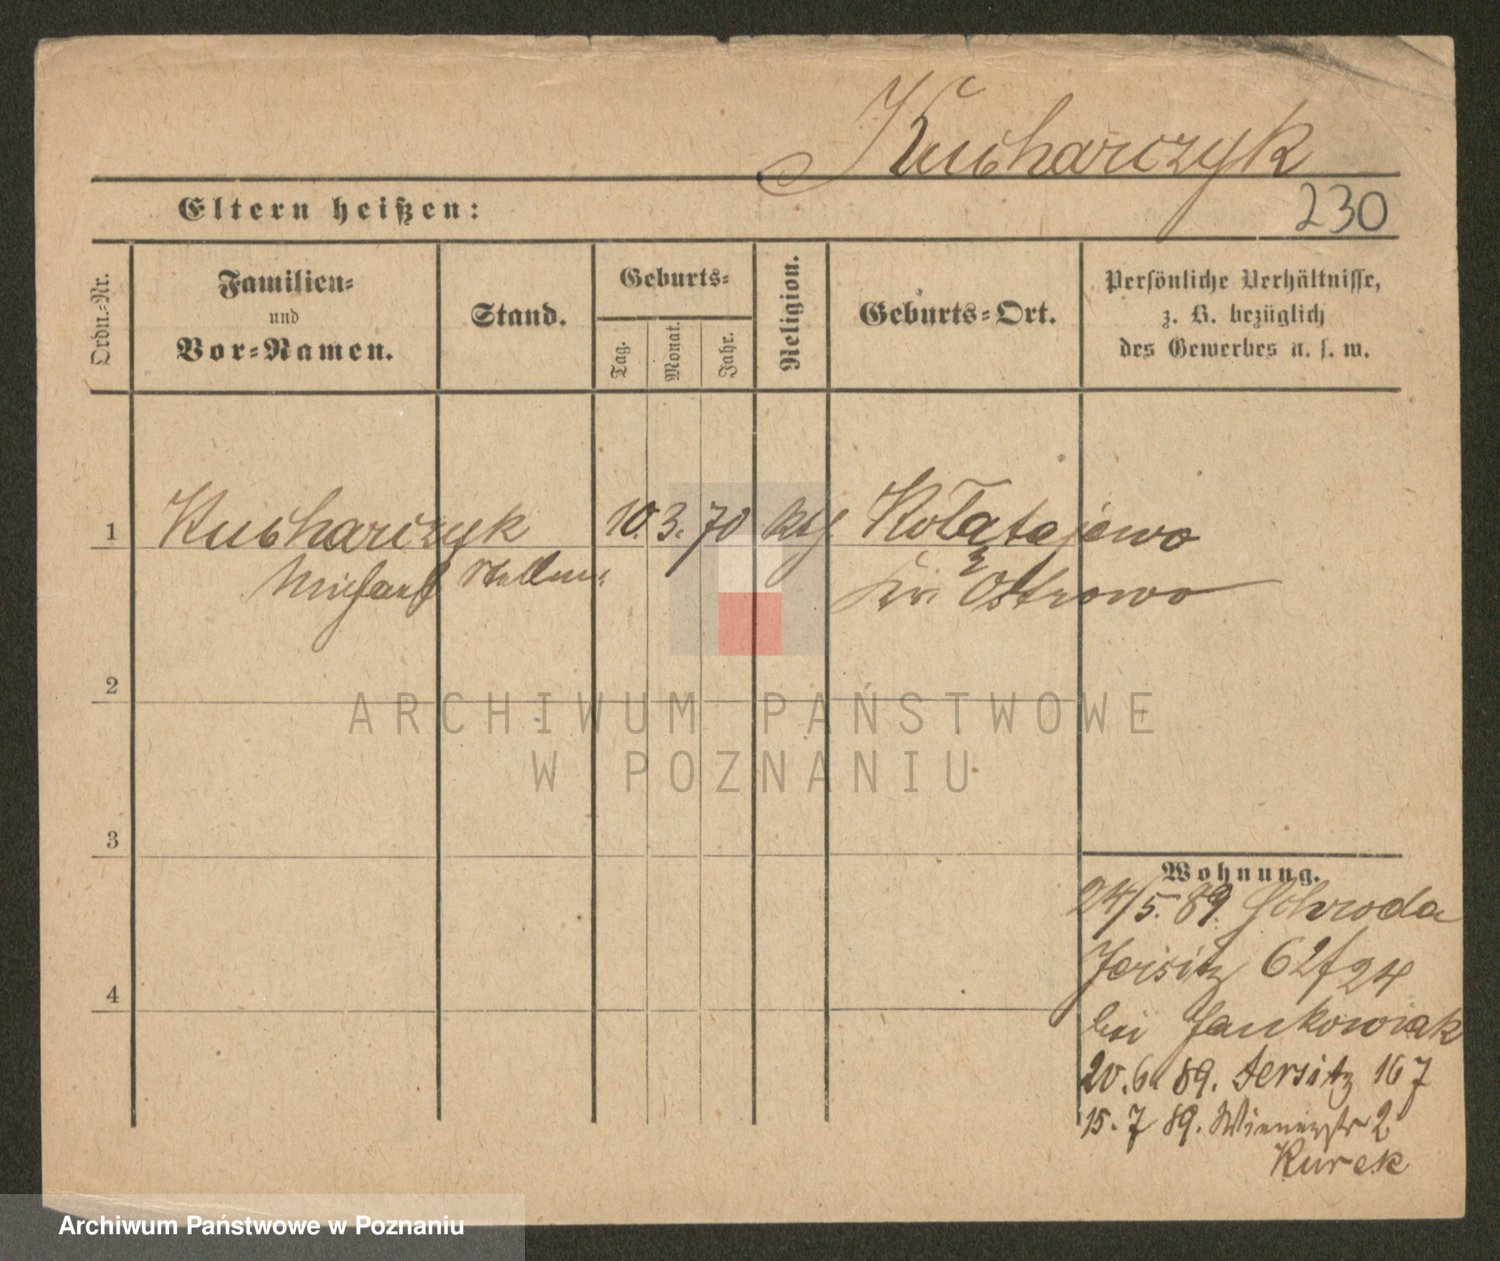 Kucharczyk
Eltern heißen:
230
Ordn.-Nr.
Familien-
und
Vor-Namen.
Stand.
Geburts-
Tag.
Monat.
Jahr.
Religion.
Geburts-Ort.
Persönliche Verhältnisse,
z. B. bezüglich
des Gewerbes u. s. w.
1 Kucharczyk 10. 3. 70 kth. Kołatajewo
Michael
Kr. Ostrowo
2
ARCHIWUM PAŃSTWOWE
W POZNANIU
3
4
Wohnung.
24/5. 89. Schroda
Jersitz 62/24
bei Jankowiak
20. 6. 89. Jersitz 167
15. 7 89. Wienerstr 2
Kurek
Archiwum Państwowe w Poznaniu